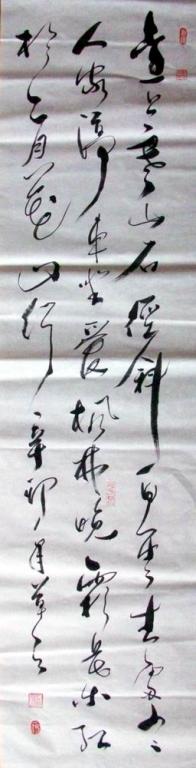 遠上寒山石徑斜白雲生處有
人家停車坐愛枫林晚霜葉紅
於二月花山行辛卯